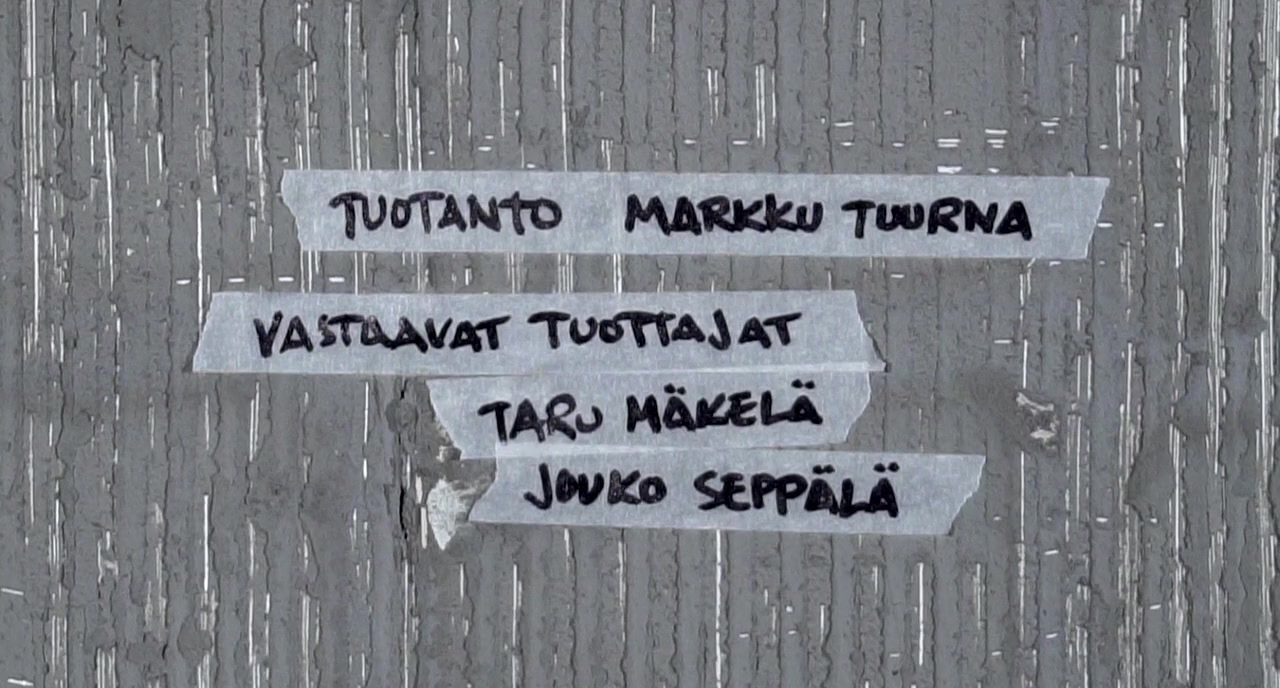 TUOTANTO MARKKU TUURNA
VASTAAVAT TUOTTAJAT
TARU MÄKELÄ
JOUKO SEPPÄLÄ